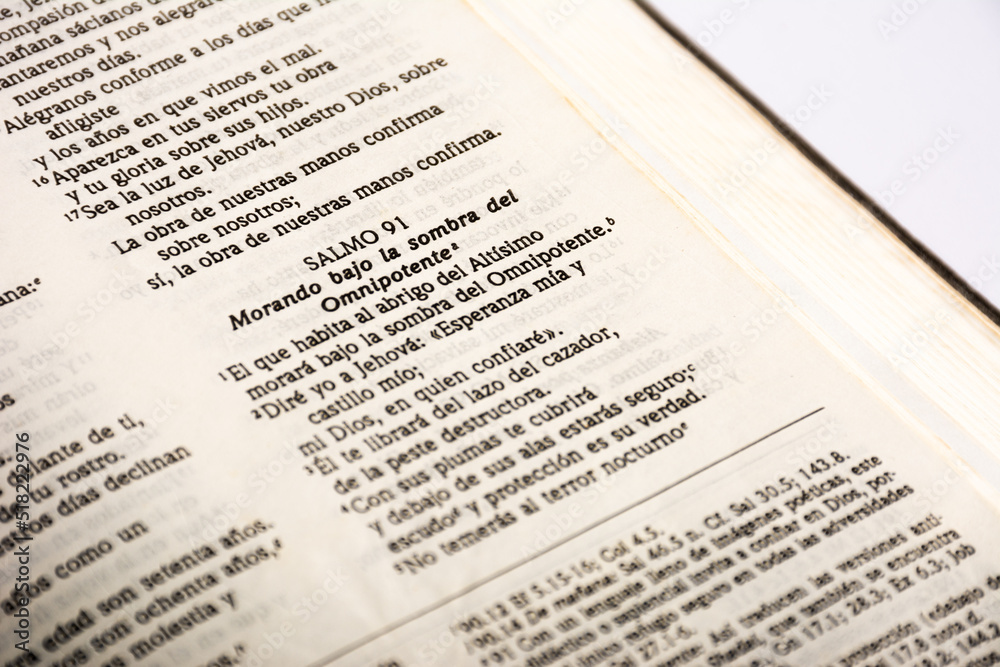 compasión de
mañana sácianos de
cantaremos y nos alegraremos
nuestros días.
Alégranos conforme a los días que
afligiste
y los años en que vimos el mal.
16 Aparezca en tus siervos tu obra
y tu gloria sobre sus hijos.
17 Sea la luz de Jehová, nuestro Dios, sobre
nosotros.
La obra de nuestras manos confirma
sobre nosotros;
sí, la obra de nuestras manos confirma.
SALMO 91
Morando bajo la sombra del
Omnipotente a
1 El que habita al abrigo del Altísimo
morará bajo la sombra del Omnipotente. b
2 Diré yo a Jehová: «Esperanza mía y
castillo mío;
mi Dios, en quien confiaré».
3 Él te librará del lazo del cazador,
de la peste destructora.
4 Con sus plumas te cubrirá
y debajo de sus alas estarás seguro; c
escudo d y protección es su verdad.
5 No temerás al terror nocturno e
ana: e
os
elante de ti,
su rostro.
os días declinan
os como un
edad son setenta años.
os son ochenta años, g
molestia y
90.13 Ef 5.15-16; Col 4.5.
90.14 De mañana: Sal 46.5 n. Cf. Sal 30.5; 143.8.
Con un lenguaje lleno de imágenes poéticas, este
invita a confiar en Dios, por-
seguro en todas las adversidades
27.1-6.
Así traducen las versiones
Gn 17.1; 28.3; Ex 6.3; Job
Adobe Stock | #518222976
Adobe Stock